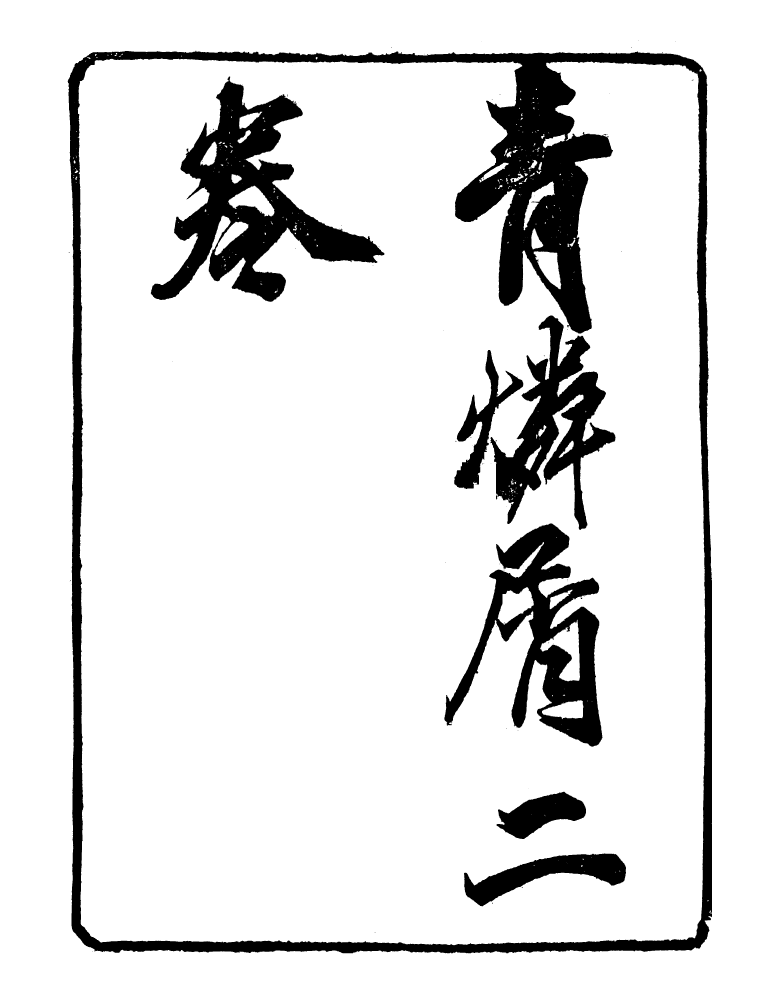 青燐屑二
卷